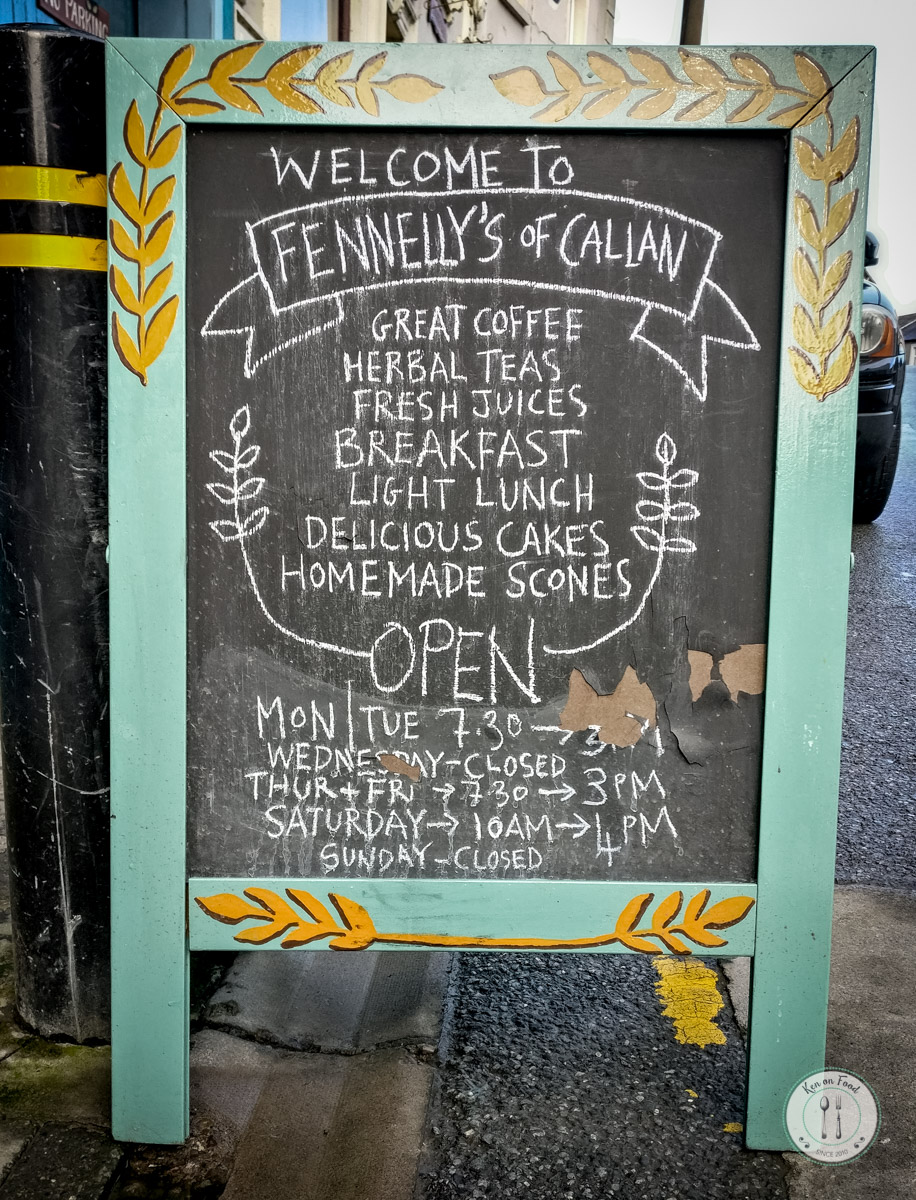 NO PARKING
WELCOME TO
FENNELLY'S OF CALLAN
GREAT COFFEE
HERBAL TEAS
FRESH JUICES
BREAKFAST
LIGHT LUNCH
DELICIOUS CAKES
HOMEMADE SCONES
OPEN
MON|TUE 7.30→
WEDNESDAY-CLOSED
THUR+FRI →7.30→3PM
SATURDAY→10AM→4PM
SUNDAY-CLOSED
Ken on Food
SINCE 2010